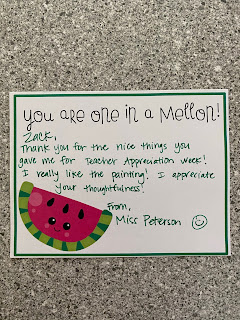 you are one in a Mellon!
Zack,
Thank you for the nice things you
gave me for Teacher Appreciation week!
I really like the painting! I appreciate
your thoughtfulness!
From,
Miss Peterson ☺